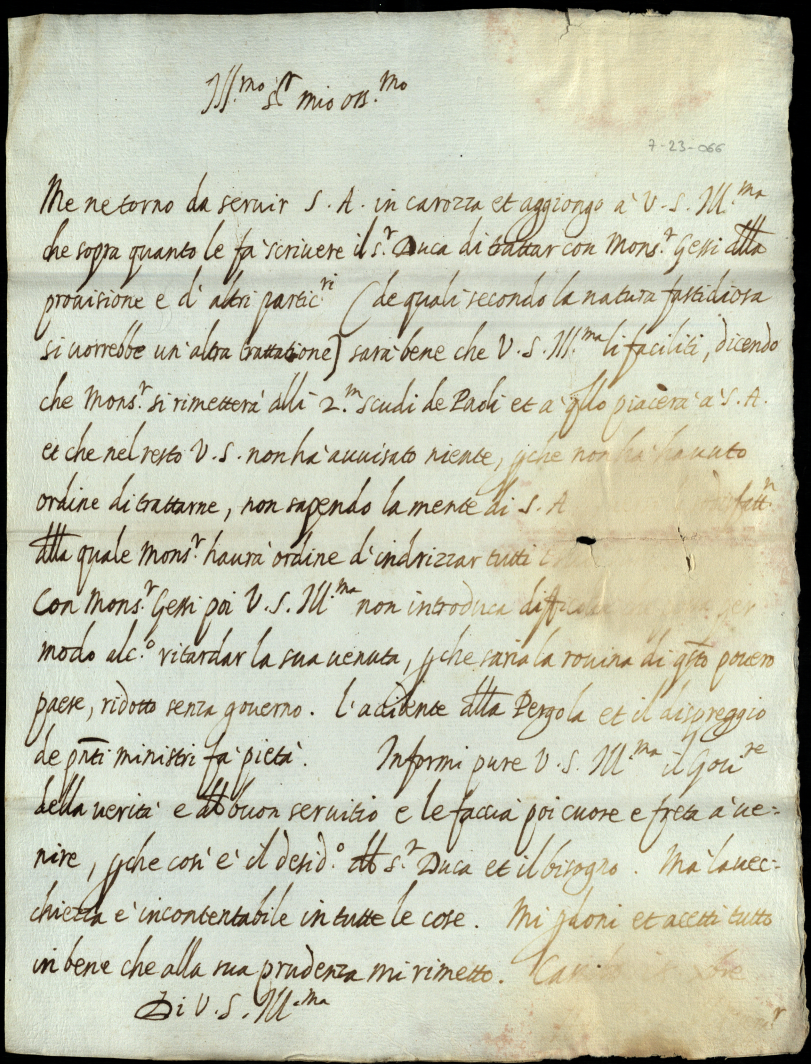 Ill.mo s.r mio oss.mo
7-23-066
Me ne torno da servir S. A. in carozza et aggiongo à V. S. Ill.ma
che sopra quanto le fà scrivere il s.r Duca di trattar con Mons.r Gessi della
provisione e d'altri partic.ri (de quali secondo la natura fastidiosa
si vorrebbe un'altra trattatione) sarà bene che V. S. Ill.ma li faciliti, dicendo
che Mons.r si rimetterà alli 2.m scudi de Paoli et a qllo piacerà à S. A.
et che nel resto V. S. non ha avvisato niente, pche non ha havuto
ordine di trattarne, non sapendo la mente di S. A
dlla quale Mons.r havrà ordine d'indrizzar tutti
Con Mons.r Gessi poi V. S. Ill.ma non introduca difficoltà per
modo alc.o ritardar la sua venuta, pche saria la rovina di qsto povero
paese, ridotto senza governo. l'accidente dlla Pergola et il dispreggio
de pnti ministri fà pietà. Informi pure V. S. Ill.ma il Gov.re
della verità e dl buon servitio e le faccia poi cuore e freta à ve=
nire, pche così è il desid.o dl s.r Duca et il bisogno. Mà la vec=
chiezza è incontentabile in tutte le cose. Mi pdoni et acetti tutto
in bene che alla sua prudenza mi rimetto.
Di V. S. Ill.ma